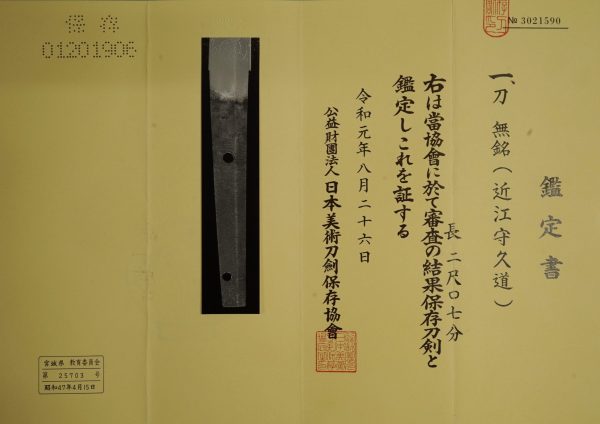 № 3021590
鑑定書
一、刀 無銘(近江守久道)
長 二尺〇七分
右は當協會に於て審査の結果保存刀剣と
鑑定しこれを証する
令和元年八月二十六日
公益財團法人 日本美術刀劍保存協會
保存
01201906
宮城県 教育委員会
第 25703 号
昭和47年4月15日